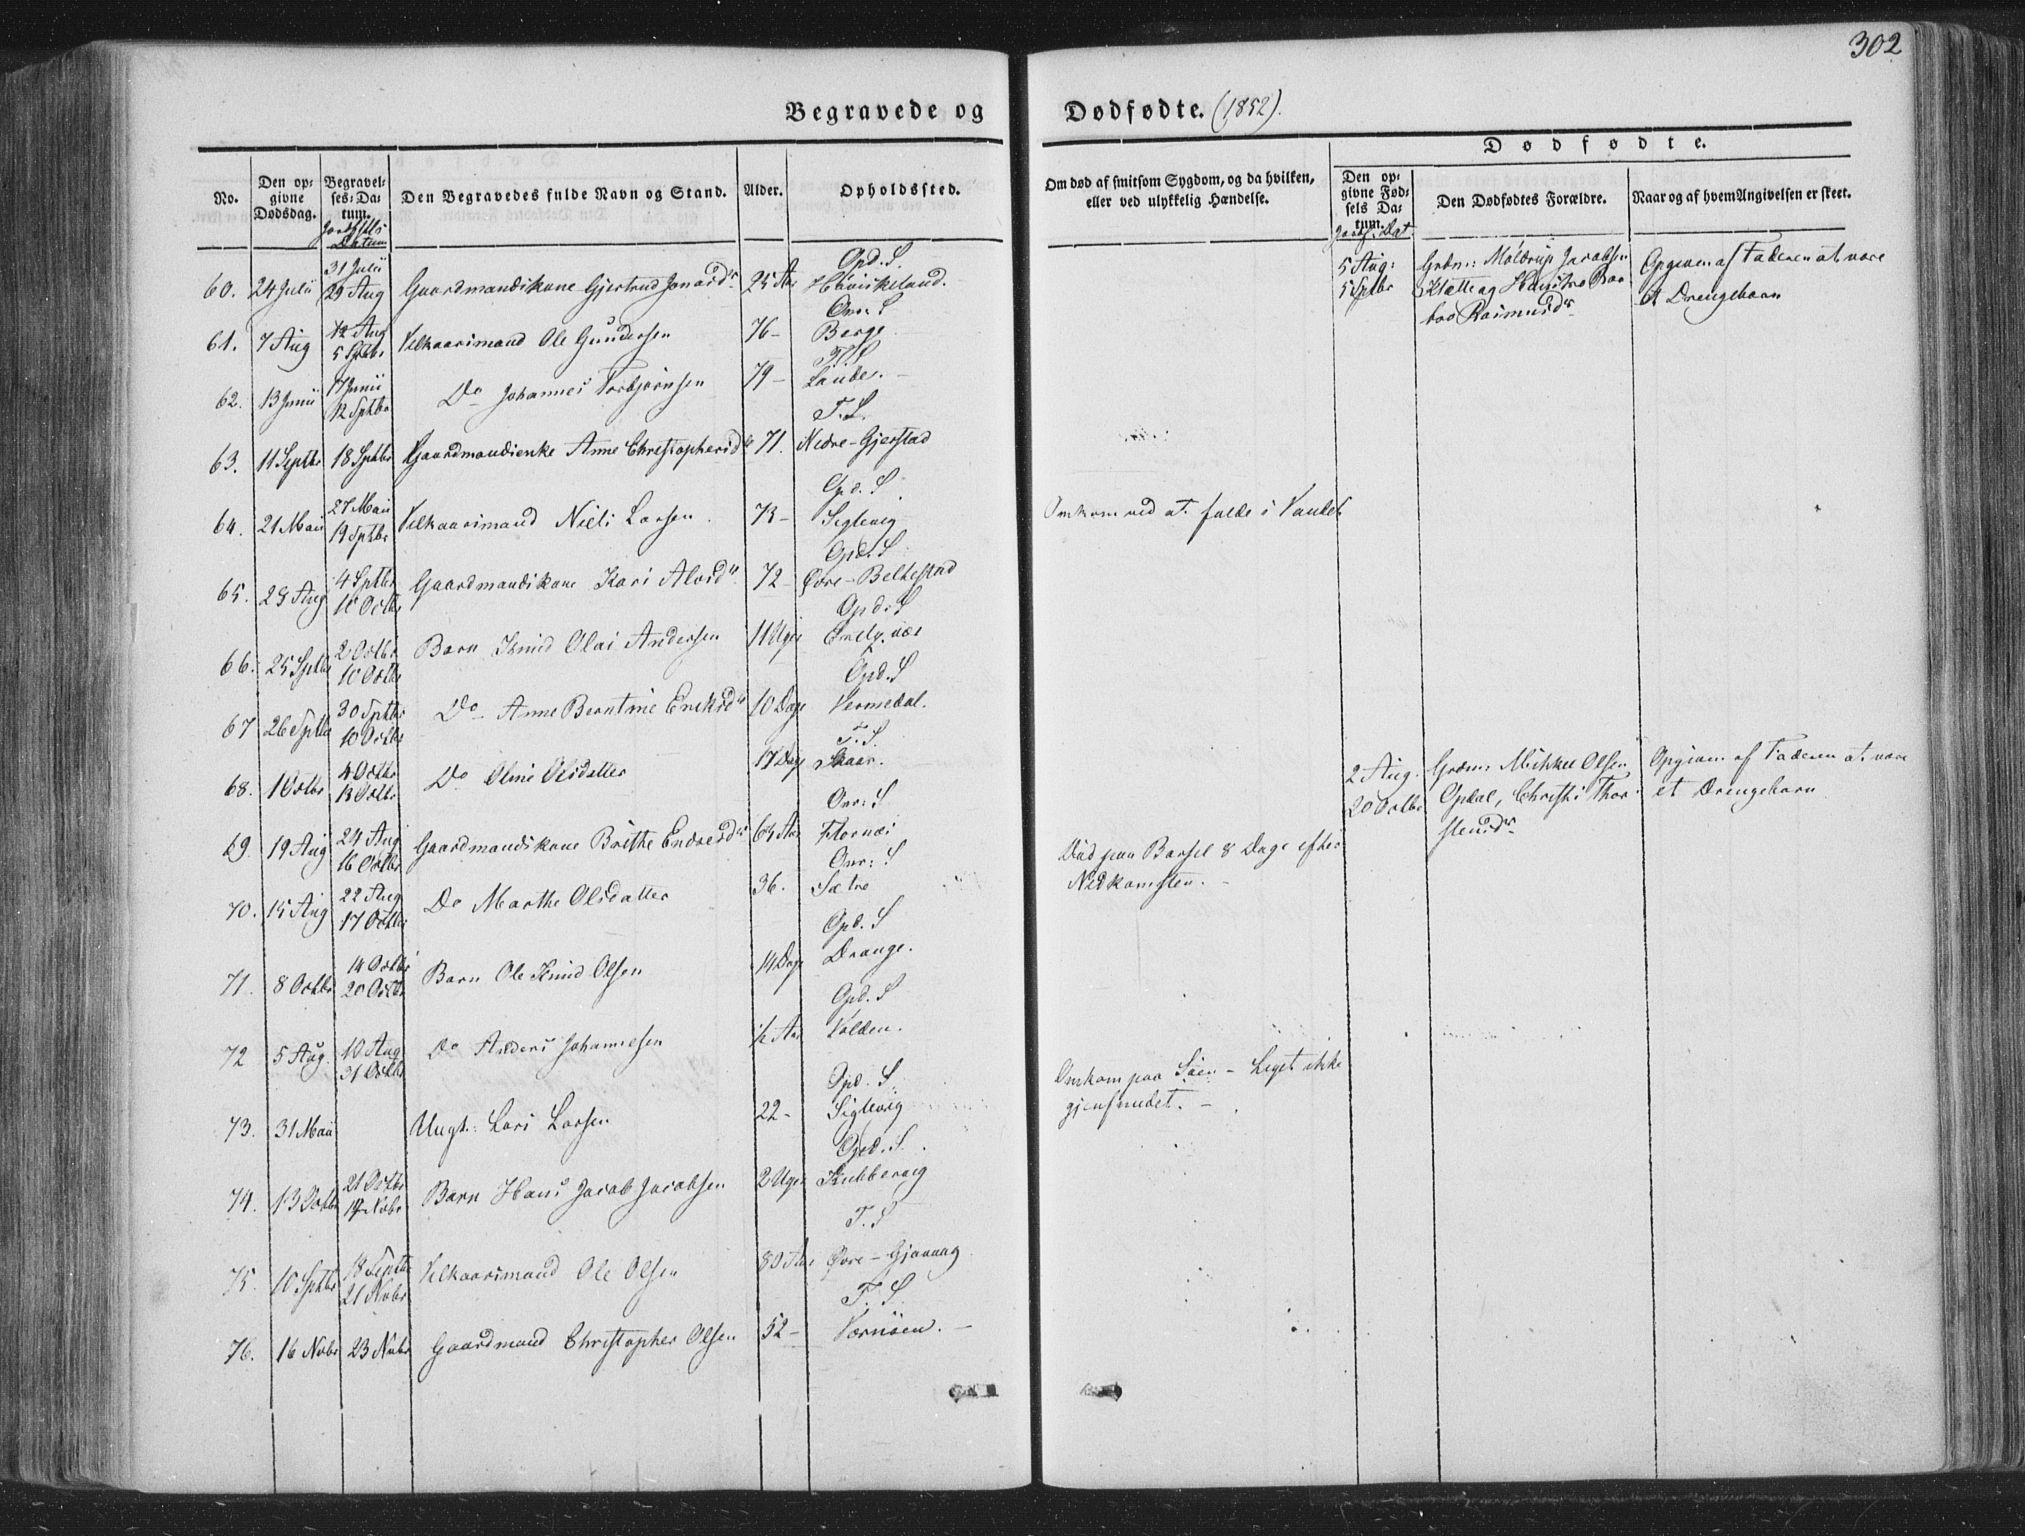 302
Begravede og Dødfødte. (1852).
Dødfødte.
No.
Den opgivne Dødsdag.
Begravelses-Datum.
Jordfstls Datum
Den Begravedes fulde Navn og Stand.
Alder.
Opholdssted.
Om død af smitsom Sygdom, og da hvilken, eller ved ulykkelig Hændelse.
Den opgivne Fødsels Datum.
Jordf: Dat.
Den Dødfødtes Forældre.
Naar og af hvem Angivelsen er skeet.
Opd. S.
60. 24 Julii 31 Julii 29 Aug Gaardmandskone Gjertrud Jonasdr 25 Aar
5 Aug: 5 Sptbr
Grdm: Jacobsen
Klætte og Rasmusdr
Opgiven af Faderen at være
et Drengebarn
Onr: S
61. 7 Aug 12 Aug 5 Sptbr Velkaarsmand Ole Gundersen 76 - Berge
T. S
62. 13 Junii 17 Junii 12 Sptbr Do Johannes Torbjørnsen 79 -
T. S.
63. 11 Septbr 18 Sptbr Gaardmandsenke Anne Christophersdr 71. Nedre-Gjerstad
Opd. S.
64. 21 Maii 27 Maii 19 Sptbr Velkaarsmand Niels Larsen 73 - Siglevig
Omkom ved at falde i Vandet
Opd. S
65. 28 Aug 4 Sptbr 10 Octbr Gaardmandskone Kari Alvsdr 72 - Øvre-Belkestad
Opd: S
66. 25 Sptbr 2 Octbr 10 Octbr Barn Knud Olai Andersen 11 Uger
Opd. S
67 26 Sptbr 30 Sptbr 10 Octbr Do Anne Berntine Ericksdr 10 Dage Vermedal.
T. S.
68. 1 Octbr 4 Octbr 13 Octbr Do Oline Olsdatter 17 Dage Skaar.
2 Aug. 20 Octbr
Grdm: Mikkel Olsen
Opdal, Christi Thorstensdr
Opgiven af Faderen at være
et Drengebarn
Onr: S
69. 19 Aug 24 Aug 16 Octbr Gaardmandskone Brithe Endresdr 64 Aar Flornæs
Onr: S
70. 15 Aug 22 Aug 17 Octbr Do Marthe Olsdatter 36. Sætre
Død paa Barsel 8 Dage efter
Nedkomsten. -
Opd. S
71. 8 Octbr 14 Octbr 20 Octbr Barn Ole Knud Olsen 14 Dage Drange.
Opd. S
72 5 Aug 10 Aug 31 Octbr Do Anders Johannesen ½ Aar Volden.
Opd. S.
73. 31 Maii Ungk: Lars Larsen 22 - Siglevig
Omkom paa Søen - Liget ikke
gjenfundet. -
Opd. S.
74. 13 Octbr 21 Octbr 14 Nobr Barn Hans Jacob Jacobsen 2 Uger Kubbervig
T. S
75. 10 Sptbr 18 Septbr 21 Nobr Velkaarsmand Ole Olsen 80 Aar Øvre-Gjønnag
T. S.
76. 16 Nobr 23 Nobr Gaardmand Christopher Olsen 52 - Vernøen. -